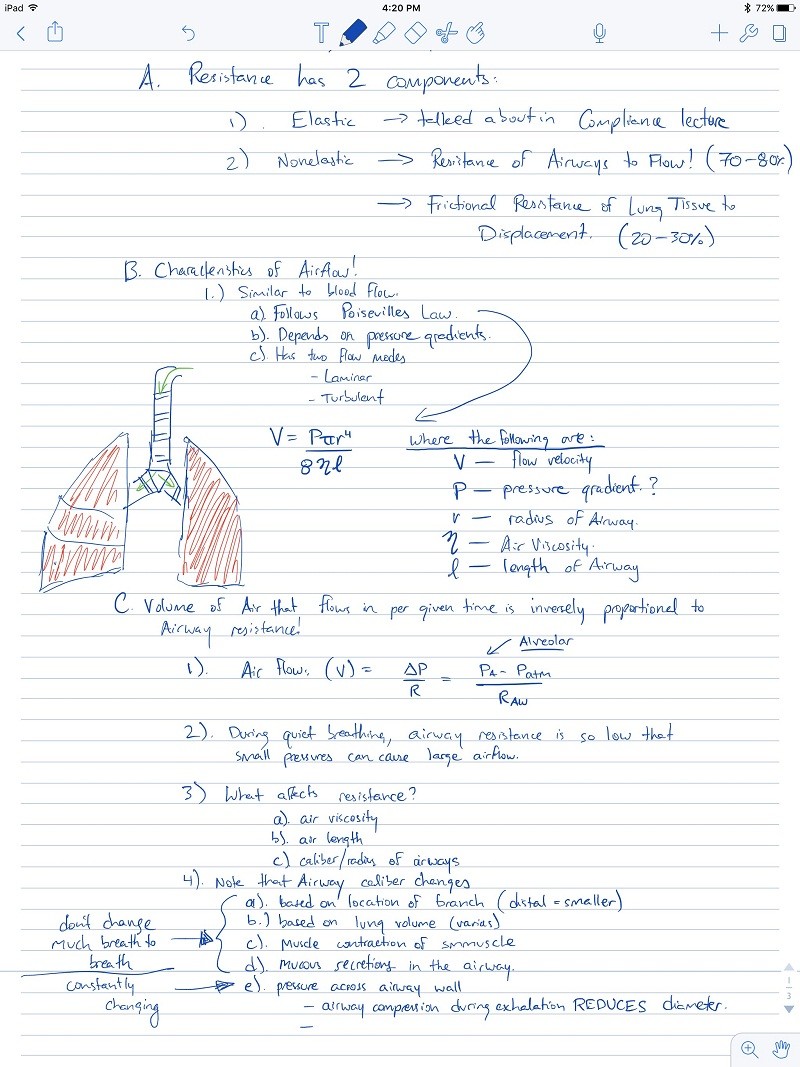 iPad
4:20 PM
72%
T
A. Resistance has 2 components:
1). Elastic → talked about in Compliance lecture
2) Nonelastic → Resistance of Airways to Flow! (70-80%)
→ Frictional Resistance of Lung Tissue to
Displacement. (20-30%)
B. Characteristics of Airflow!
1.) Similar to blood flow.
a). Follows Poisevilles Law.
b). Depends on pressure gradients.
c). Has two flow modes
- Laminar
- Turbulent
V = Pπr⁴ / 8ηl
where the following are:
V — flow velocity
P — pressure gradient.?
r — radius of Airway.
η — Air Viscosity.
l — length of Airway
C. Volume of Air that flows in per given time is inversely proportional to
Airway resistance!
Alveolar
1). Air flow, (V) = ΔP / R = PA - Patm / RAW
2). During quiet breathing, airway resistance is so low that
small pressures can cause large airflow.
3) What affects resistance?
a). air viscosity
b). air length
c.) caliber/radius of airways
4). Note that Airway caliber changes
a). based on location of branch (distal = smaller)
b.) based on lung volume (varias)
c). Muscle contraction of smmuscle
d). mucous secretions in the airway.
don't change
much breath to
breath
constantly
changing
e). pressure across airway wall
- airway compression during exhalation REDUCES diameter.
-
1
3